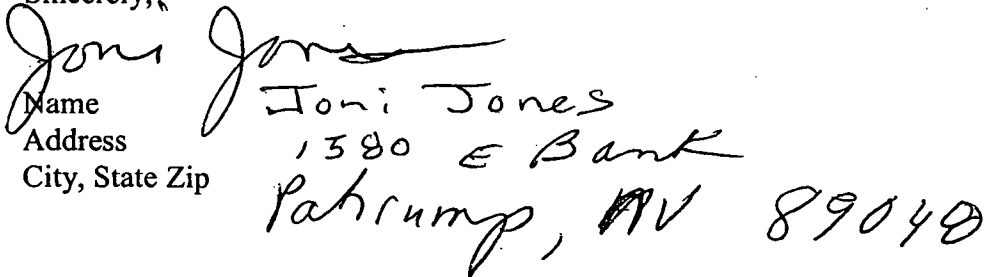 Sincerely,
Joni Jones
Name Joni Jones
Address 1380 E Bank
City, State Zip Pahrump, NV 89048